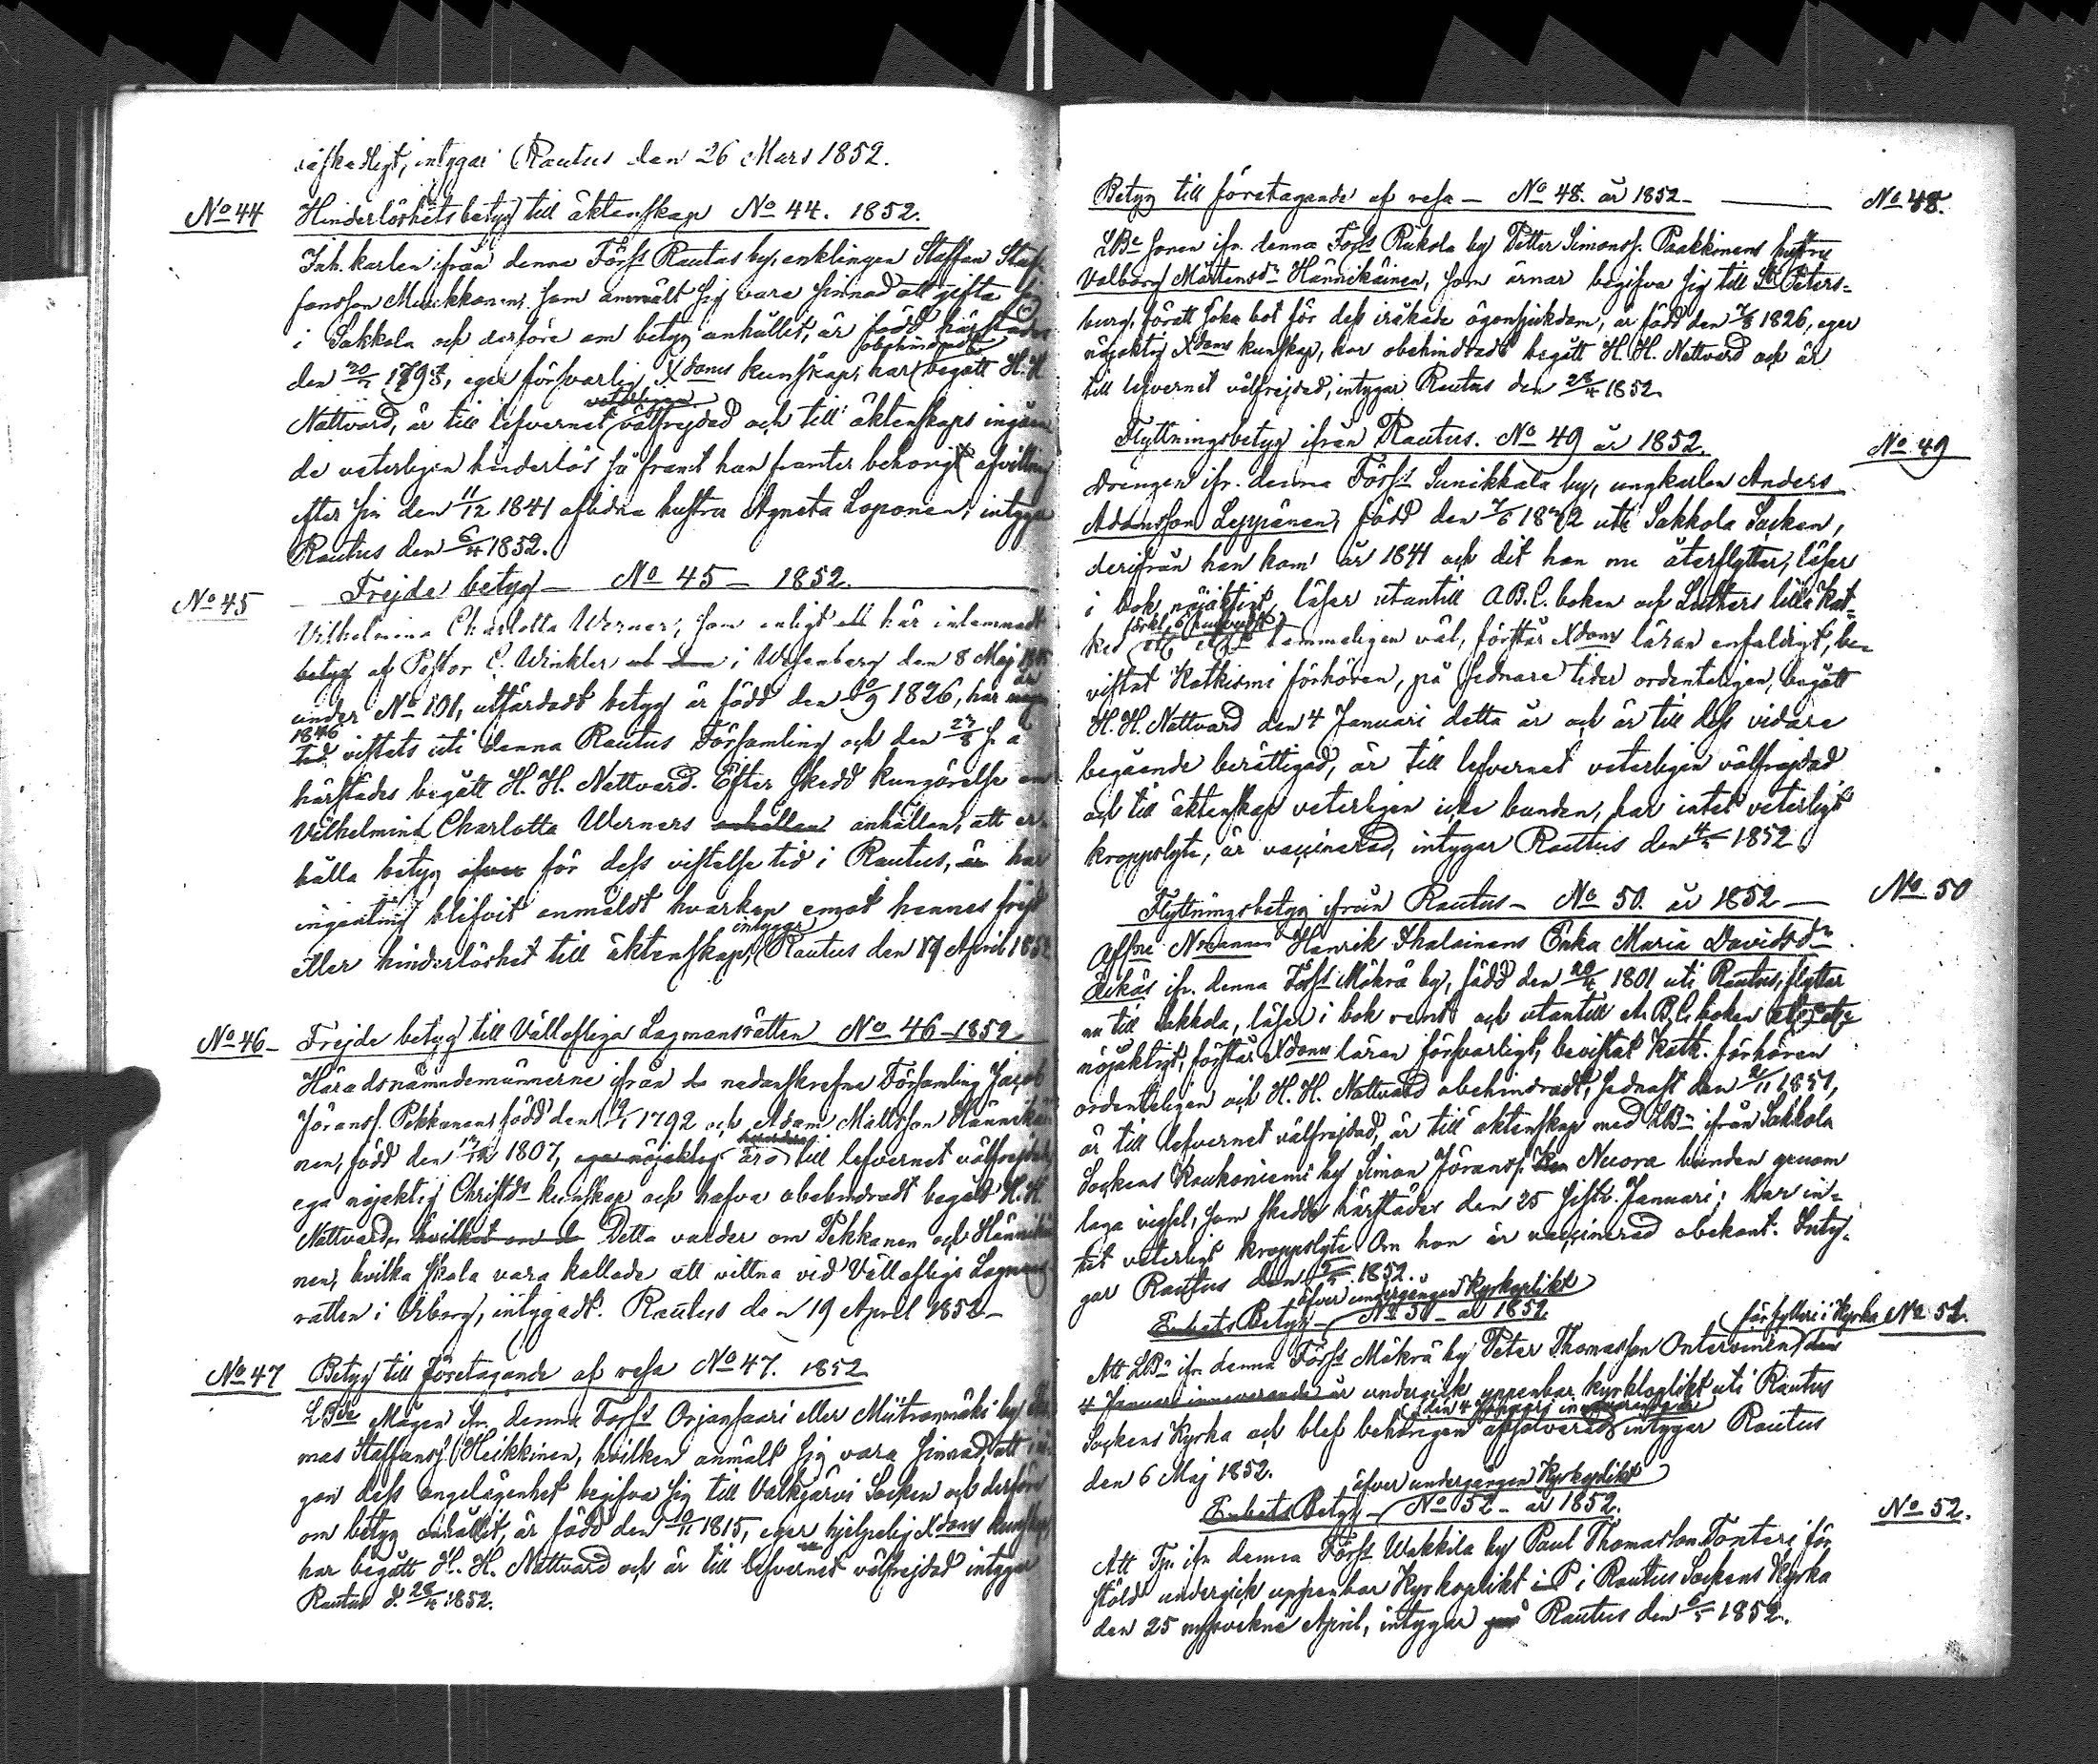 intygar Rautus den 26 Mars 1852.
No 44 Hinderlöshets betyg till äktenskap No 44. 1852.
Inh. karlen ifrån denna Förs:s Rautus by, enklingen Staffan Staf-
fansson Muukkonen, som anmält sig vara sinnad att gifta sig
i Sakkola och derföre om betyg anhållit, är född härstädes
den 20/ eger försvarlig Xdoms kunskap, har obehindradt begått H. H.
Nattvard, är till lefvernet veterligen välfrejdad och till äktenskaps ingåen
de veterligen hinderlös så framt han præsterar behörig afvittring
efter sin den 11/12 1841 aflidna hustru Agneta Loponen, intygar
Rautus den 6/4 1852.
No 45 Frejde betyg — No 45 — 1852.
Vilhelmina Charlotta Werner, som enligt ett här inlemnadt
betyg af Pastor C. Winkler i Wesenberg den 8 Maj
under No 101, utfärdadt betyg är född den 1826, har
1846
tid vistats uti denna Rautus Församling och den 27/8 s. å
härstädes begått H. H. Nattvard. Efter skedd kungörelse om
Vilhelmina Charlotta Werners anhållan anhållan, att er-
hålla betyg öfver för dess vistelse tid i Rautus, är har
ingenting blifvit anmäldt hvarken emot hennes frejd
eller hinderlöshet till äktenskap, intygar Rautus den 17 April 1852
No 46 Frejde betyg till Vällofliga Lagmansrätten No 46 — 1852
Häradsnämndemännerne ifrån nedanskrefne Församling Jacob
Jöransf. Pekkanen, född den 1792 och Adam Mattsson Hännikäi
nen, född den 1807, ega nöjaktig äro till lefvernet välfrejdade,
ega nöjaktig Christds kunskap och hafva obehindradt begått H. H.
Nattvard, hvilket Detta varder om Pekkanen och Hännikäi
nen, hvilka skola vara kallade att vittna vid Vällofliga Lagmans
rätten i Wiborg, intygadt. Rautus den 19 April 1852 —
No 47 Betyg till företagande af resa No 47. 1852
LBde Mågen ifn. denna Förs:s Orjansaari eller Miitronmäki by
mas Staffansf. Heikkinen, hvilken anmält sig vara sinnad, att i
gon dess angelägenhet begifva sig till Valkjärvi Socken och derföre
om betyg anhållit, är född den 1815, eger hjelpelig Xdoms kunskap
har begått H. H. Nattvard och är till lefvernet välfrejdad intygar
Rautus d. 28/4 1852.
Betyg till företagande af resa — No 48. år 1852 — No 48.
LBe sonen ifn. denna Förs:s Riikola by Petter Simonsf. Paakkinens hustru
Valborg Mårtensdr Hännikäinen, som ärnar begifva sig till St. Peters-
burg, föratt söka bot för dess iråkade ögonsjukdom, är född den 7/8 1826, eger
nöjaktig Xdoms kunskap, har obehindradt begått H. H. Nattvard och är
till lefvernet välfrejdad, intygar Rautus den 28/4 1852.
Flyttningsbetyg ifrån Rautus. No 49 år 1852. No 49
Drengen ifr. denna Förs:s Sunikkala by, ungkarlen Anders
Adamsson Leppänen, född den uti Sakkola Socken,
derifrån han kom år 1841 och dit han nu återflyttar, läser
i bok nöjaktigt, läser utantill A.B.C. boken och Luthers lilla Kat-
kes temmeligen väl, förstår Xdoms läran enfaldigt, be-
vistat Katkismi förhören, på sednare tider ordenteligen, begått
H. H. Nattvard den 4 Januari detta år och är till dess vidare
begående berättigad, är till lefvernet veterligen välfrejdad
och till äktenskap veterligen icke bunden, har intet veterligt
kroppslyte, är vaccinerad, intygar Rautus den 4/5 1852
Flyttningsbetyg ifrån Rautus — No 50. år 1852 — No 50
Affne Nmannen Henrik Ihalainens Enka Maria Davidsdr
ifr. denna Förs:s Mäkrä by, född den 1801 uti Rautus, flyttar
nu till Sakkola, läser i bok rent och utantill A.B.C. boken
nöjaktigt, förstår Xdoms läran försvarligt, bevistat Katk. förhören
ordenteligen och H. H. Nattvard obehindradt, sednast den 2/11 1851,
är till lefvernet välfrejdad, är till äktenskap med LBn ifrån Sakkola
Sockens Raukoniemi by Simon Jöransf. Nuora bunden genom
laga vigsel, som skedde härstädes den 25 sistl. Januari; har in-
tet veterligt kroppslyte. Om hon är vaccinerad obekant. Inty-
gar Rautus den 5/5 1852.
öfver undergången kyrkoplikt
Embets Betyg — No 51 — år 1852 för fylleri i Kyrka No 51.
Att LBn ifr. denna Förs:s Mäkrä by Peter Thomasson Ontervinen den
4 Januari innevarande år undergick uppenbar kyrkloplikt uti Rautus
(den 4 Januari innevarande år)
Sockens Kyrka och blef behörigen absolverad, intygar Rautus
den 6 Maj 1852.
öfver undergången Kyrkoplikt
Embets Betyg — No 52 — år 1852. No 52.
Att Tjn ifr denna Förs:s Wakkila by Paul Thomasson Tonteri för
stöld undergick uppenbar Kyrkoplikt i P i Rautus Sockens Kyrka
den 25 nyssvekne April, intygar på Rautus den 6/5 1852.